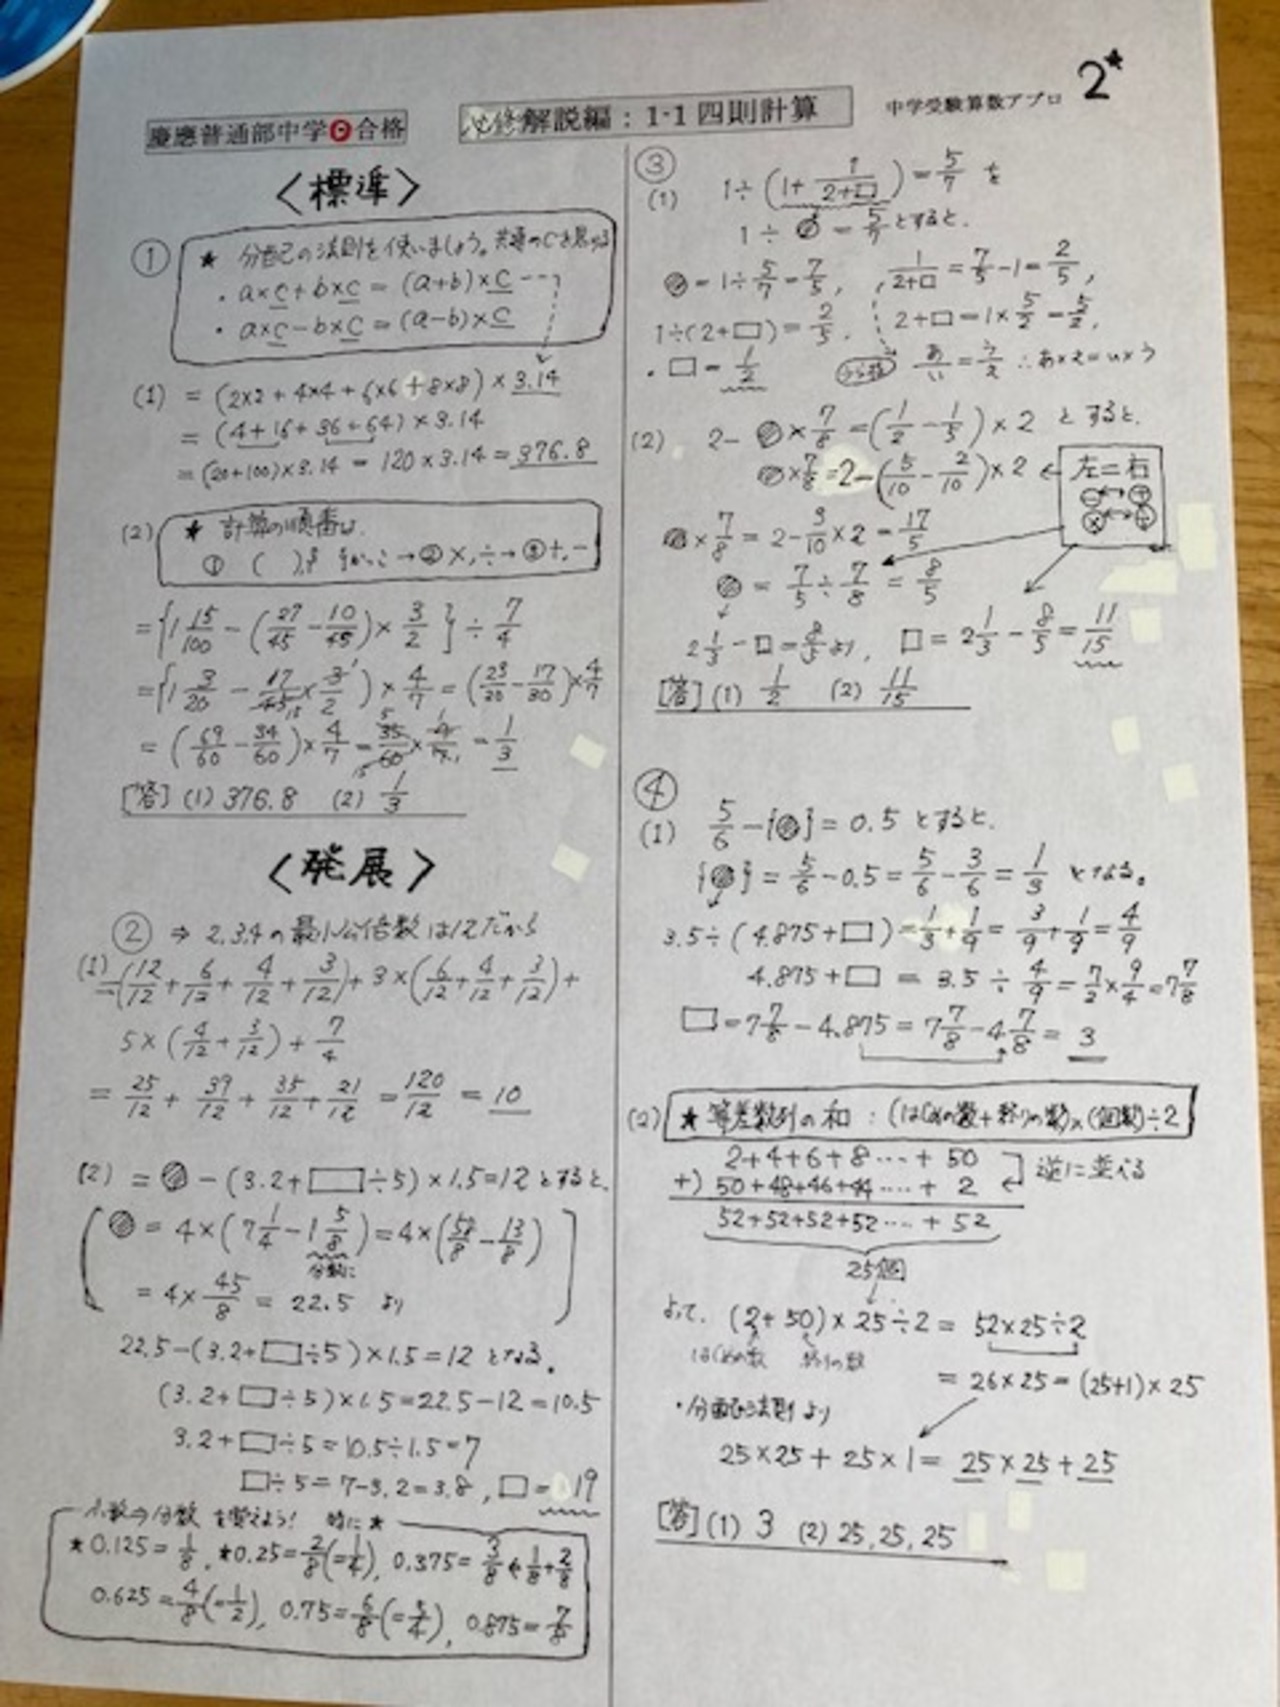 慶應普通部中学◎合格
必修解説編：1-1 四則計算
中学受験算数アプロ
2★
〈標準〉
① ★ 分配の法則を使いましょう。共通のCを見つける
・a×c+b×c=(a+b)×c
・a×c-b×c=(a-b)×c
(1) =(2×2+4×4+6×6+8×8)×3.14
=(4+16+36+64)×3.14
=(20+100)×3.14=120×3.14=376.8
(2) ★ 計算の順番は、
① ( ),{ }かっこ→②×,÷→③+,-
={1 15/100-(27/45-10/45)×3/2}÷7/4
={1 3/20-17/45×3/2)×4/7=(23/20-17/30)×4/7
=(69/60-34/60)×4/7=35/60×4/7=1/3
[答] (1) 376.8 (2) 1/3
〈発展〉
② ⇒ 2,3,4の最小公倍数は12だから
(1) =(12/12+6/12+4/12+3/12)+3×(6/12+4/12+3/12)+
5×(4/12+3/12)+7/4
=25/12+39/12+35/12+21/12=120/12=10
(2) =●-(3.2+□÷5)×1.5=12とすると、
●=4×(7 1/4-1 5/8)=4×(58/8-13/8)
分数に
=4×45/8=22.5 より
22.5-(3.2+□÷5)×1.5=12 となる。
(3.2+□÷5)×1.5=22.5-12=10.5
3.2+□÷5=10.5÷1.5=7
□÷5=7-3.2=3.8, □=19
小数⇒分数 を覚えよう! 特に★
★0.125=1/8, ★0.25=2/8(=1/4), 0.375=3/8←1/8+2/8
0.625=4/8(=1/2), 0.75=6/8(=3/4), 0.875=7/8
③
(1) 1÷(1+1/(2+□))=5/7 を
1÷●=5/7とすると、
●=1÷5/7=7/5, 1/(2+□)=7/5-1=2/5,
1÷(2+□)=2/5. 2+□=1×5/2=5/2,
・□=1/2 あ/い=う/え ∴あ×え=い×う
(2) 2-●×7/8=(1/2-1/5)×2 とすると、
●×7/8=2-(5/10-2/10)×2 ← 左=右
⊖↔⊕
⊗↔÷
●×7/8=2-3/10×2=17/5
●=7/5÷7/8=8/5
2 1/3-□=8/5より, □=2 1/3-8/5=11/15
[答] (1) 1/2 (2) 11/15
④
(1) 5/6-{●}=0.5 とすると、
{●}=5/6-0.5=5/6-3/6=1/3 となる。
3.5÷(4.875+□)=1/3+1/9=3/9+1/9=4/9
4.875+□=3.5÷4/9=7/2×9/4=7 7/8
□=7 7/8-4.875=7 7/8-4 7/8=3
(2) ★等差数列の和：(はじめの数+終りの数)×(個数)÷2
2+4+6+8‥‥+50
+) 50+48+46+44‥‥+2 逆に並べる
52+52+52+52‥‥+52
25個
よって、(2+50)×25÷2=52×25÷2
はじめの数 終りの数
=26×25=(25+1)×25
・分配の法則より
25×25+25×1=25×25+25
[答] (1) 3 (2) 25,25,25